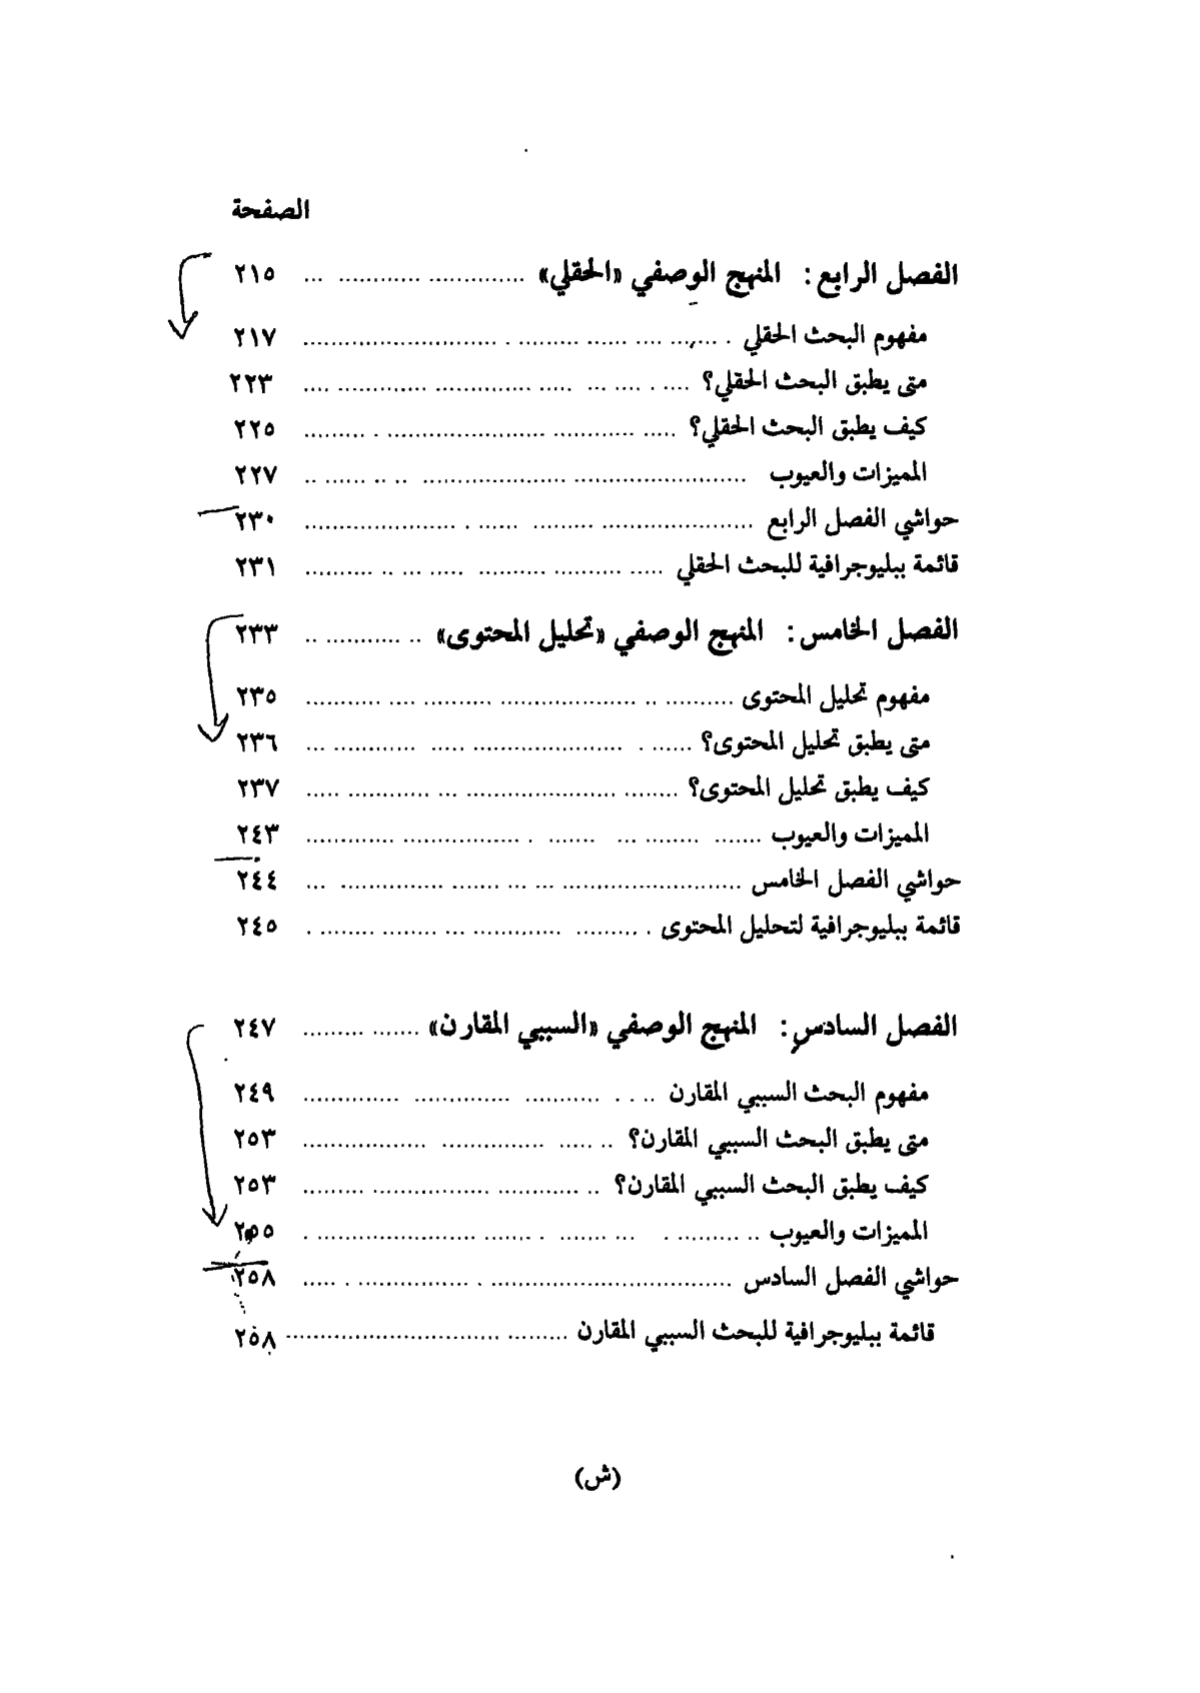 الصفحة
الفصل الرابع: المنهج الوصفي «الحقلي» ٢١٥
مفهوم البحث الحقلي ٢١٧
متى يطبق البحث الحقلي؟ ٢٢٣
كيف يطبق البحث الحقلي؟ ٢٢٥
المميزات والعيوب ٢٢٧
حواشي الفصل الرابع ٢٣٠
قائمة ببليوجرافية للبحث الحقلي ٢٣١
الفصل الخامس: المنهج الوصفي «تحليل المحتوى» ٢٣٣
مفهوم تحليل المحتوى ٢٣٥
متى يطبق تحليل المحتوى؟ ٢٣٦
كيف يطبق تحليل المحتوى؟ ٢٣٧
المميزات والعيوب ٢٤٣
حواشي الفصل الخامس ٢٤٤
قائمة ببليوجرافية لتحليل المحتوى ٢٤٥
الفصل السادس: المنهج الوصفي «السببي المقارن» ٢٤٧
مفهوم البحث السببي المقارن ٢٤٩
متى يطبق البحث السببي المقارن؟ ٢٥٣
كيف يطبق البحث السببي المقارن؟ ٢٥٣
المميزات والعيوب ٢٥٥
حواشي الفصل السادس ٢٥٨
قائمة ببليوجرافية للبحث السببي المقارن ٢٥٨
(ش)